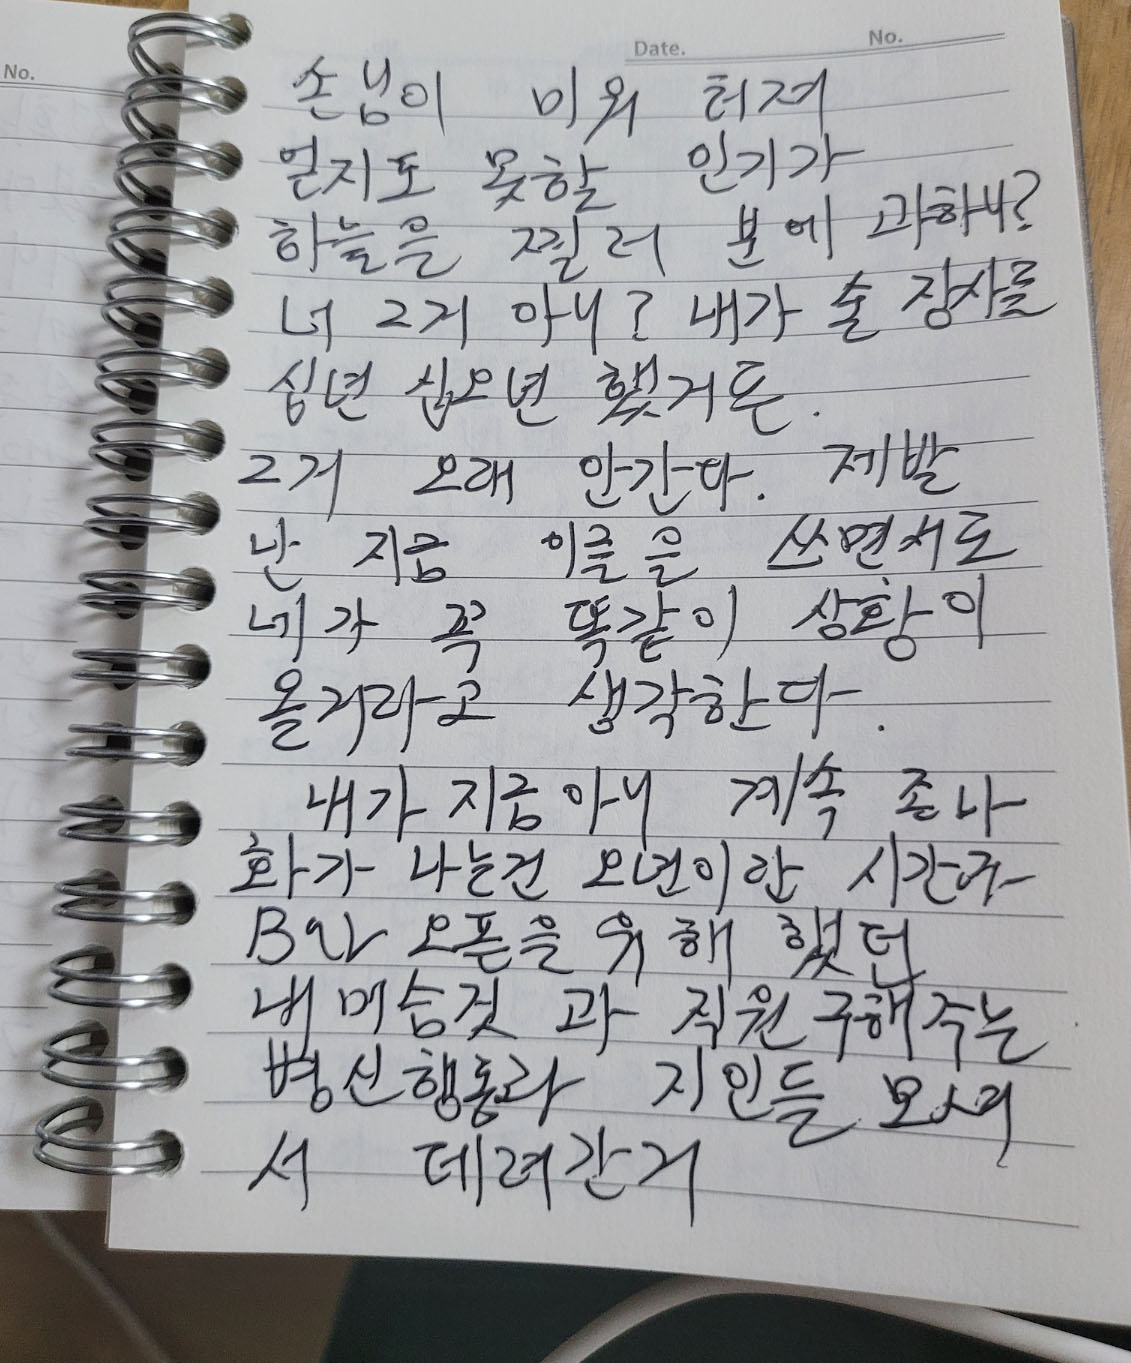 No.
Date. No.
손님이 미워 터져
얻지도 못할 인기가
하늘은 찔러 분에 과하니?
너 그거 아니? 내가 술 장사를
십년 십오년 했거든.
그거 오래 안간다. 제발
난 지금 이글을 쓰면서도
네가 꼭 똑같이 상황이
올거라고 생각한다.
내가 지금 아니 계속 존나
화가 나는건 오년이란 시간
오픈을 위해 했던
내 머슴것 과 직원 구해주는
병신행동과 지인들 모셔
서 데려간거